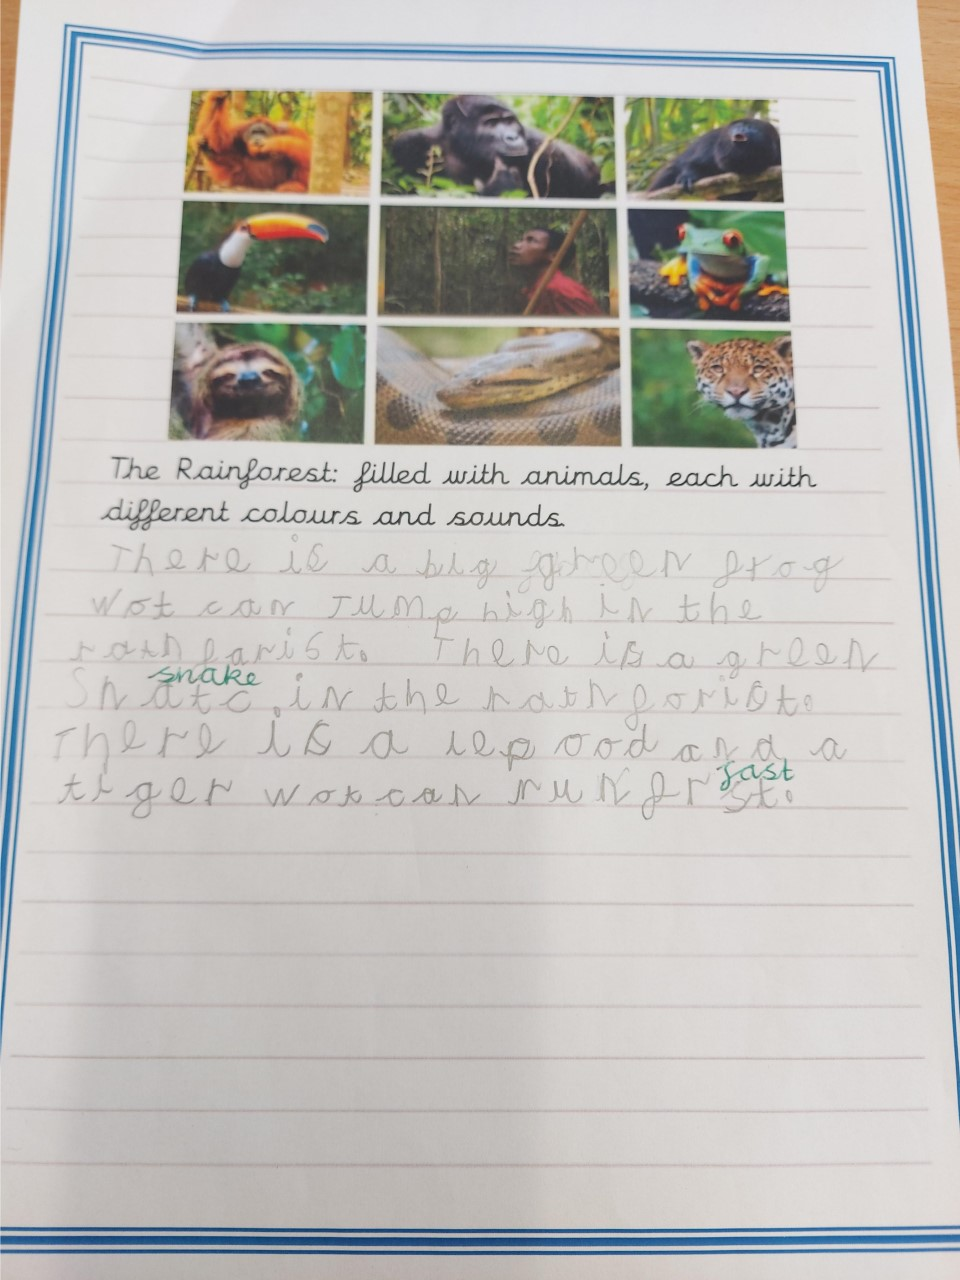 The Rainforest: filled with animals, each with
different colours and sounds.
There is a big green frog
wot can Jump high in the
rainfarist. There is a green
snake
Snatc in the rainforist.
There is a lepood and a
fast
tiger wot can run frst.